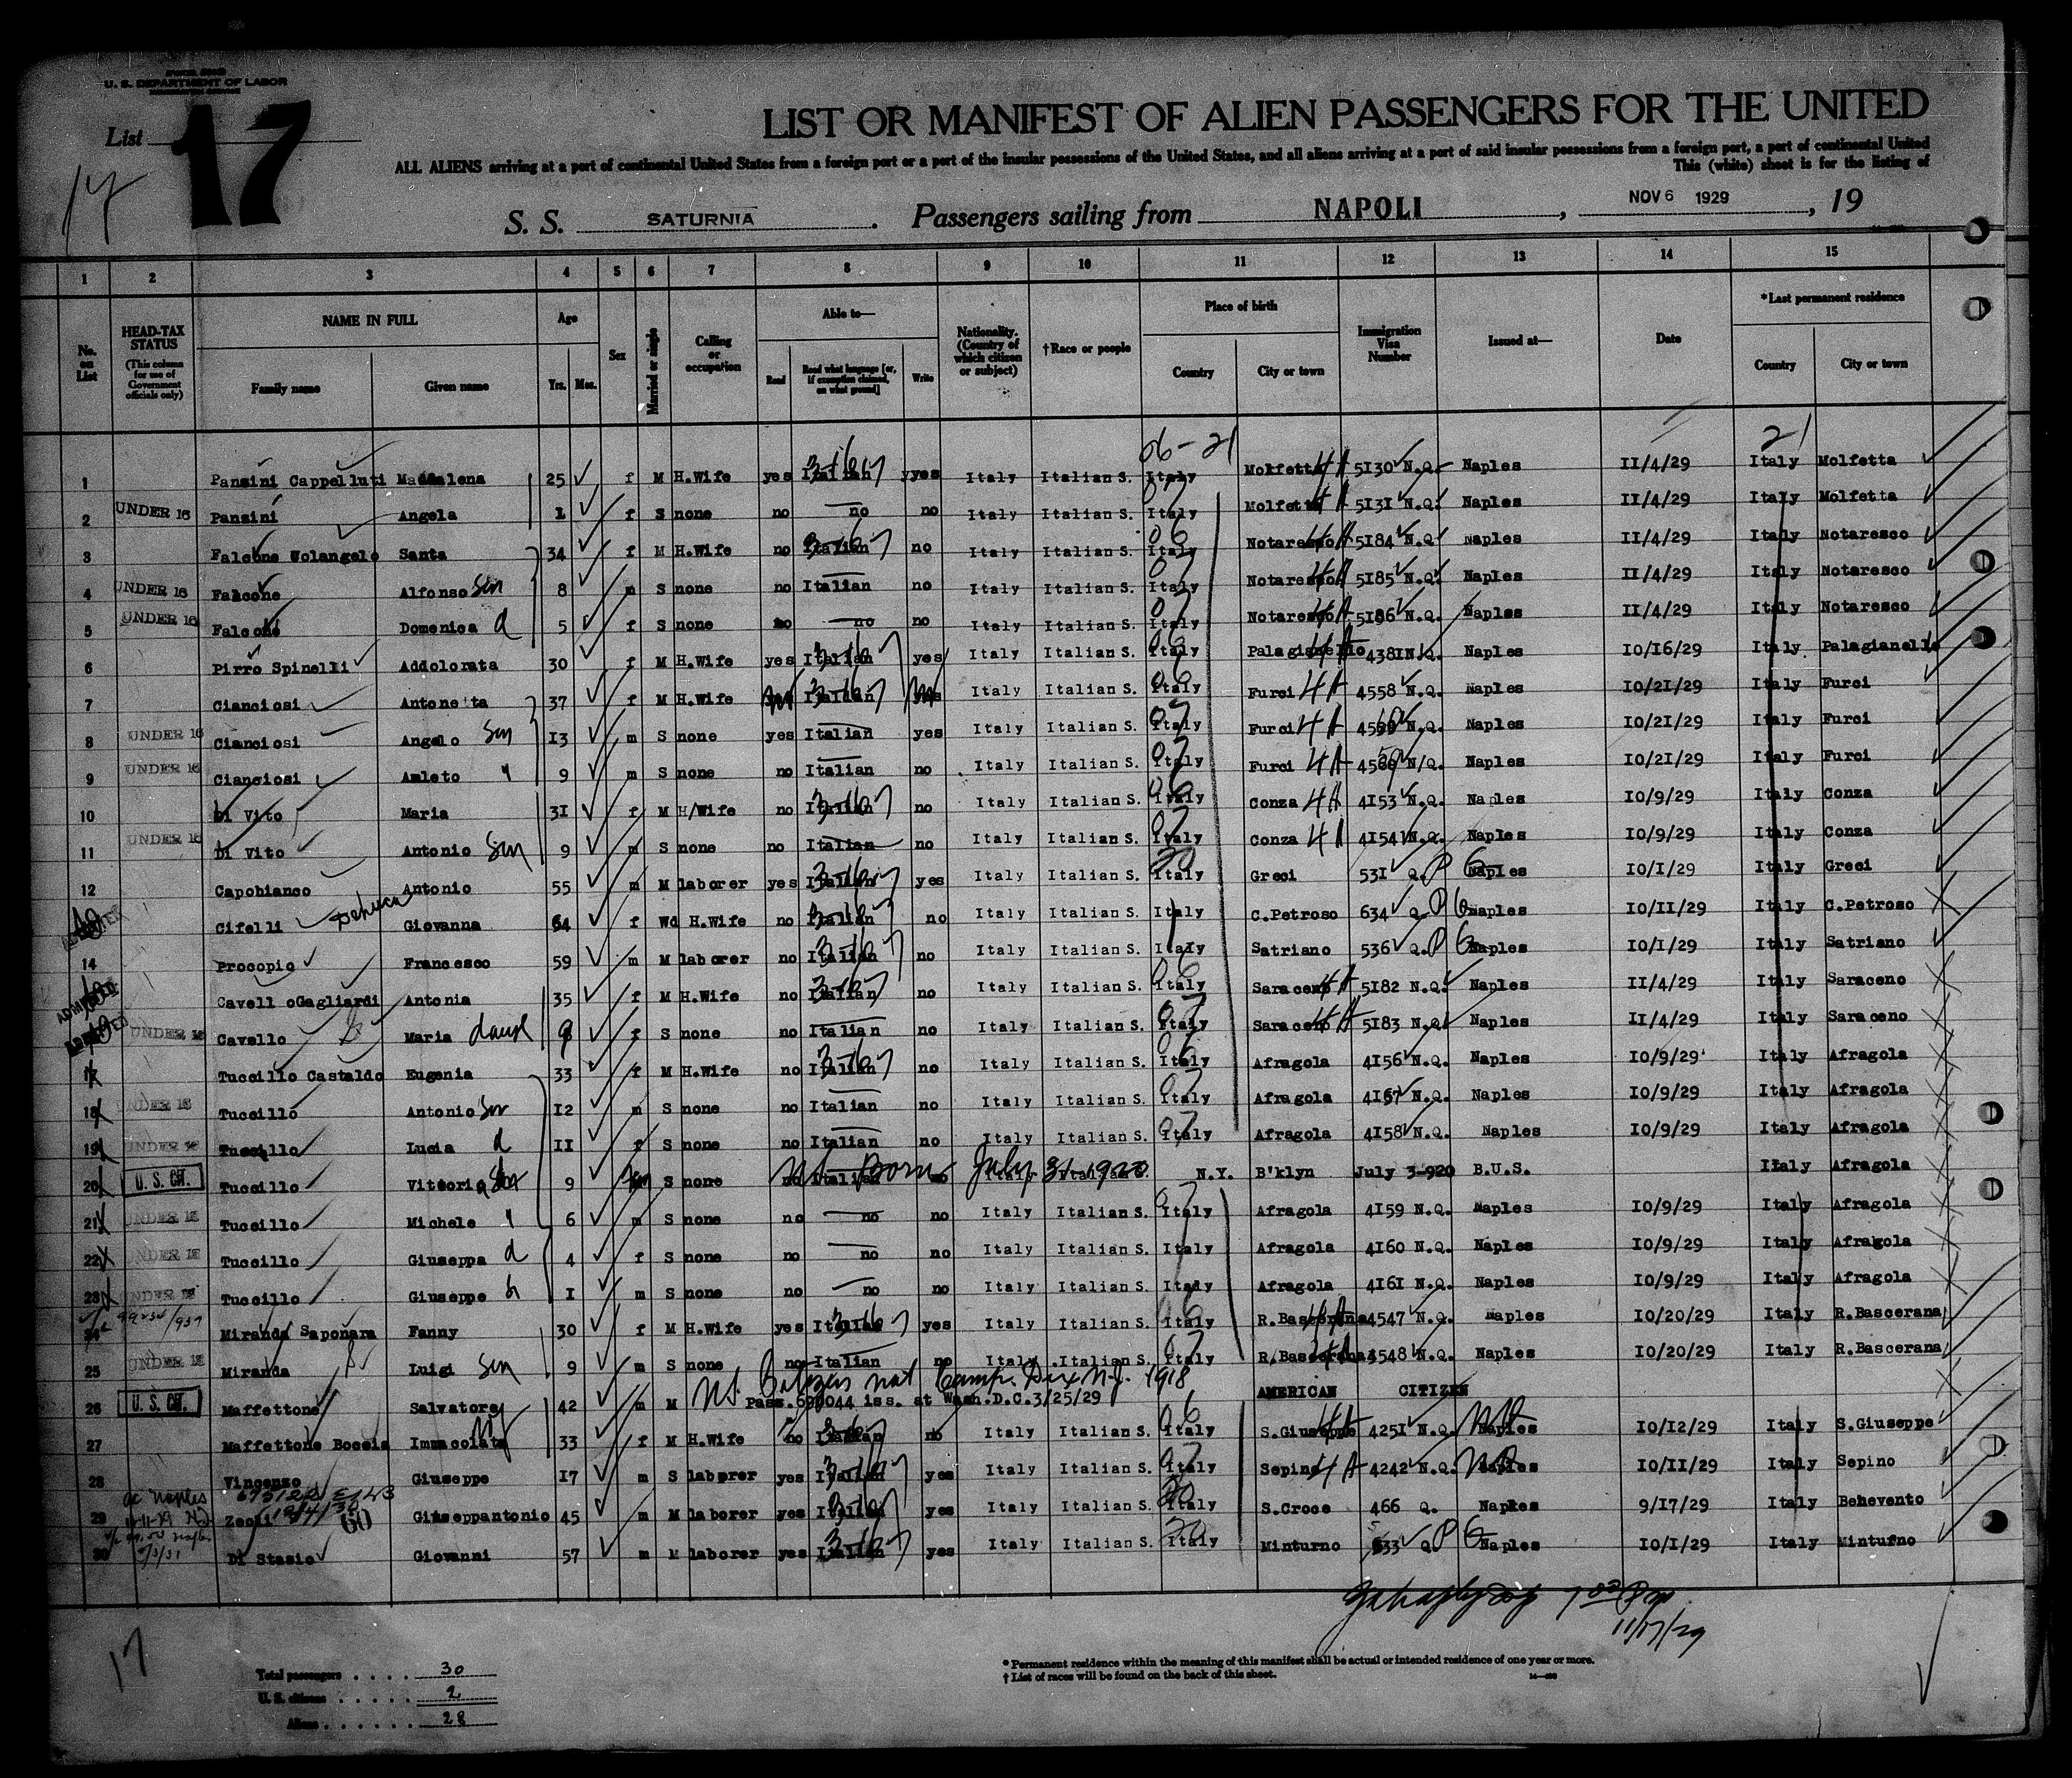 U. S. DEPARTMENT OF LABOR
List 17
17
LIST OR MANIFEST OF ALIEN PASSENGERS FOR THE UNITED
ALL ALIENS arriving at a port of continental United States from a foreign port or a port of the insular possessions of the United States, and all aliens arriving at a port of said insular possessions from a foreign port, a port of continental United
This (white) sheet is for the listing of
S. S. SATURNIA. Passengers sailing from NAPOLI, NOV 6 1929, 19
1 2 3 4 5 6 7 8 9 10 11 12 13 14 15
No. on List
HEAD-TAX STATUS (This column for use of Government officials only)
NAME IN FULL Family name Given name
Age Yrs. Mos.
Sex
Married or single
Calling or occupation
Able to— Read Read what language [or, if exemption claimed, on what ground] Write
Nationality. (Country of which citizen or subject)
†Race or people
Place of birth Country City or town
Immigration Visa Number
Issued at—
Date
*Last permanent residence Country City or town
06-21 21
1 Pansini Cappelluti Maddalena 25 f M H.Wife yes Italian yyes Italy Italian S. Italy Molfetta 5130 N.Q. Naples 11/4/29 Italy Molfetta
2 UNDER 16 Pansini Angela 1 f S none no no no Italy Italian S. Italy Molfetta 5131 N.Q. Naples 11/4/29 Italy Molfetta
3 Falcone Wolangelo Santa 34 f M H.Wife no Italian no Italy Italian S. Italy Notaresco 5184 N.Q. Naples 11/4/29 Italy Notaresco
4 UNDER 16 Falcone Alfonso Son 8 m S none no Italian no Italy Italian S. Italy Notaresco 5185 N.Q. Naples 11/4/29 Italy Notaresco
5 UNDER 16 Falcone Domenica d 5 f S none no no no Italy Italian S. Italy Notaresco 5186 N.Q. Naples 11/4/29 Italy Notaresco
6 Pirro Spinelli Addolorata 30 f M H.Wife yes Italian yes Italy Italian S. Italy Palagianello 4381 N.Q. Naples 10/16/29 Italy Palagianello
7 Cianciosi Antonetta 37 f M H.Wife Italian Italy Italian S. Italy Furci 4558 N.Q. Naples 10/21/29 Italy Furci
8 UNDER 16 Cianciosi Angelo Son 13 m S none yes Italian yes Italy Italian S. Italy Furci N.Q. Naples 10/21/29 Italy Furci
9 UNDER 16 Cianciosi Amleto " 9 m S none no Italian no Italy Italian S. Italy Furci N/Q. Naples 10/21/29 Italy Furci
10 Di Vito Maria 31 f M H/Wife no Italian no Italy Italian S. Italy Conza 4153 N.Q. Naples 10/9/29 Italy Conza
11 UNDER 16 Di Vito Antonio Son 9 m S none no Italian no Italy Italian S. Italy Conza 4154 N.Q. Naples 10/9/29 Italy Conza
12 Capobianco Antonio 55 m M laborer yes Italian yes Italy Italian S. Italy Greci 531 Q. P Naples 10/1/29 Italy Greci
Cifelli Giovanna 64 f Wd H.Wife no Italian no Italy Italian S. Italy C.Petroso 634 Q. P Naples 10/11/29 Italy C.Petroso
14 Procopio Francesco 59 m M laborer no Italian no Italy Italian S. Italy Satriano 536 Q. P Naples 10/1/29 Italy Satriano
ADMITTED Cavello Gagliardi Antonia 35 f M H.Wife no Italian no Italy Italian S. Italy Saraceno 5182 N.Q. Naples 11/4/29 Italy Saraceno
ADMITTED UNDER 16 Cavello Maria 9 f S none no Italian no Italy Italian S. Italy Saraceno 5183 N.Q. Naples 11/4/29 Italy Saraceno
17 Tuccillo Castaldo Eugenia 33 f M H.Wife no Italian no Italy Italian S. Italy Afragola 4156 N.Q. Naples 10/9/29 Italy Afragola
18 UNDER 16 Tuccillo Antonio Son 12 m S none no Italian no Italy Italian S. Italy Afragola 4157 N.Q. Naples 10/9/29 Italy Afragola
19 UNDER 16 Tuccillo Lucia d 11 f S none no Italian no Italy Italian S. Italy Afragola 4158 N.Q. Naples 10/9/29 Italy Afragola
20 U. S. CIT. Tuccillo Vittorio 9 S none Born July 3 1920 N.Y. B'klyn July 3-920 B.U.S. Italy Afragola
21 UNDER 16 Tuccillo Michele " 6 m S none no no no Italy Italian S. Italy Afragola 4159 N.Q. Naples 10/9/29 Italy Afragola
22 UNDER 16 Tuccillo Giuseppa d 4 f S none no no no Italy Italian S. Italy Afragola 4160 N.Q. Naples 10/9/29 Italy Afragola
23 UNDER 16 Tuccillo Giuseppe 1 m S none no no no Italy Italian S. Italy Afragola 4161 N.Q. Naples 10/9/29 Italy Afragola
24 Miranda Saponara Fanny 30 f M H.Wife yes Italian yes Italy Italian S. Italy R.Bascerana 4547 N.Q. Naples 10/20/29 Italy R.Bascerana
25 UNDER 16 Miranda Luigi Son 9 m S none no Italian no Italy Italian S. Italy R.Bascerana 4548 N.Q. Naples 10/20/29 Italy R.Bascerana
26 U. S. CIT. Maffettone Salvatore 42 m M U.S. Citizen nat Camp Dix N.J. 1918 AMERICAN CITIZEN
Pass. 690044 iss. at Wash.D.C.3/25/29
27 Maffettone Boccia Immacolata 33 f M H.Wife no Italian no Italy Italian S. Italy S.Giuseppe 4251 N.Q. Naples 10/12/29 Italy S.Giuseppe
28 Vincenzo Giuseppe 17 m S laborer yes Italian yes Italy Italian S. Italy Sepino 4242 N.Q. Naples 10/11/29 Italy Sepino
29 Zeoli Giuseppantonio 45 m M laborer yes Italian yes Italy Italian S. Italy S.Croce 466 Q. Naples 9/17/29 Italy Behevento
30 Di Stasio Giovanni 57 m M laborer yes Italian yes Italy Italian S. Italy Minturno 533 Q. P Naples 10/1/29 Italy Minturno
11/17/29
17
Total passengers . . . . 30
U. S. citizens . . . . . 2
Aliens . . . . . . 28
* Permanent residence within the meaning of this manifest shall be actual or intended residence of one year or more.
† List of races will be found on the back of this sheet.